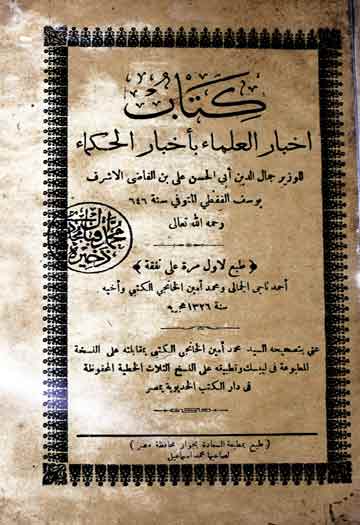 كتاب
اخبار العلماء بأخبار الحكماء
للوزير جمال الدين أبي الحسن على بن القاضى الاشرف
يوسف القفطي المتوفى سنة ٦٤٦
رحمه الله تعالى
﴿ طبع لاول مرة على نفقة ﴾
أحمد ناجى الجمالى ومحمد أمين الخانجي الكتبي وأخيه
سنة ١٣٢٦ هجرية
عني بتصحيحه السيد محمد أمين الخانجى الكتبى بمقابلته على النسخة
المطبوعة فى ليبسك وتطبيقه على النسخ الثلاث الخطية المحفوظة
فى دار الكتب الخديوية بمصر
( طبع بمطبعة السعادة بجوار محافظة مصر )
لصاحبها محمد اسماعيل